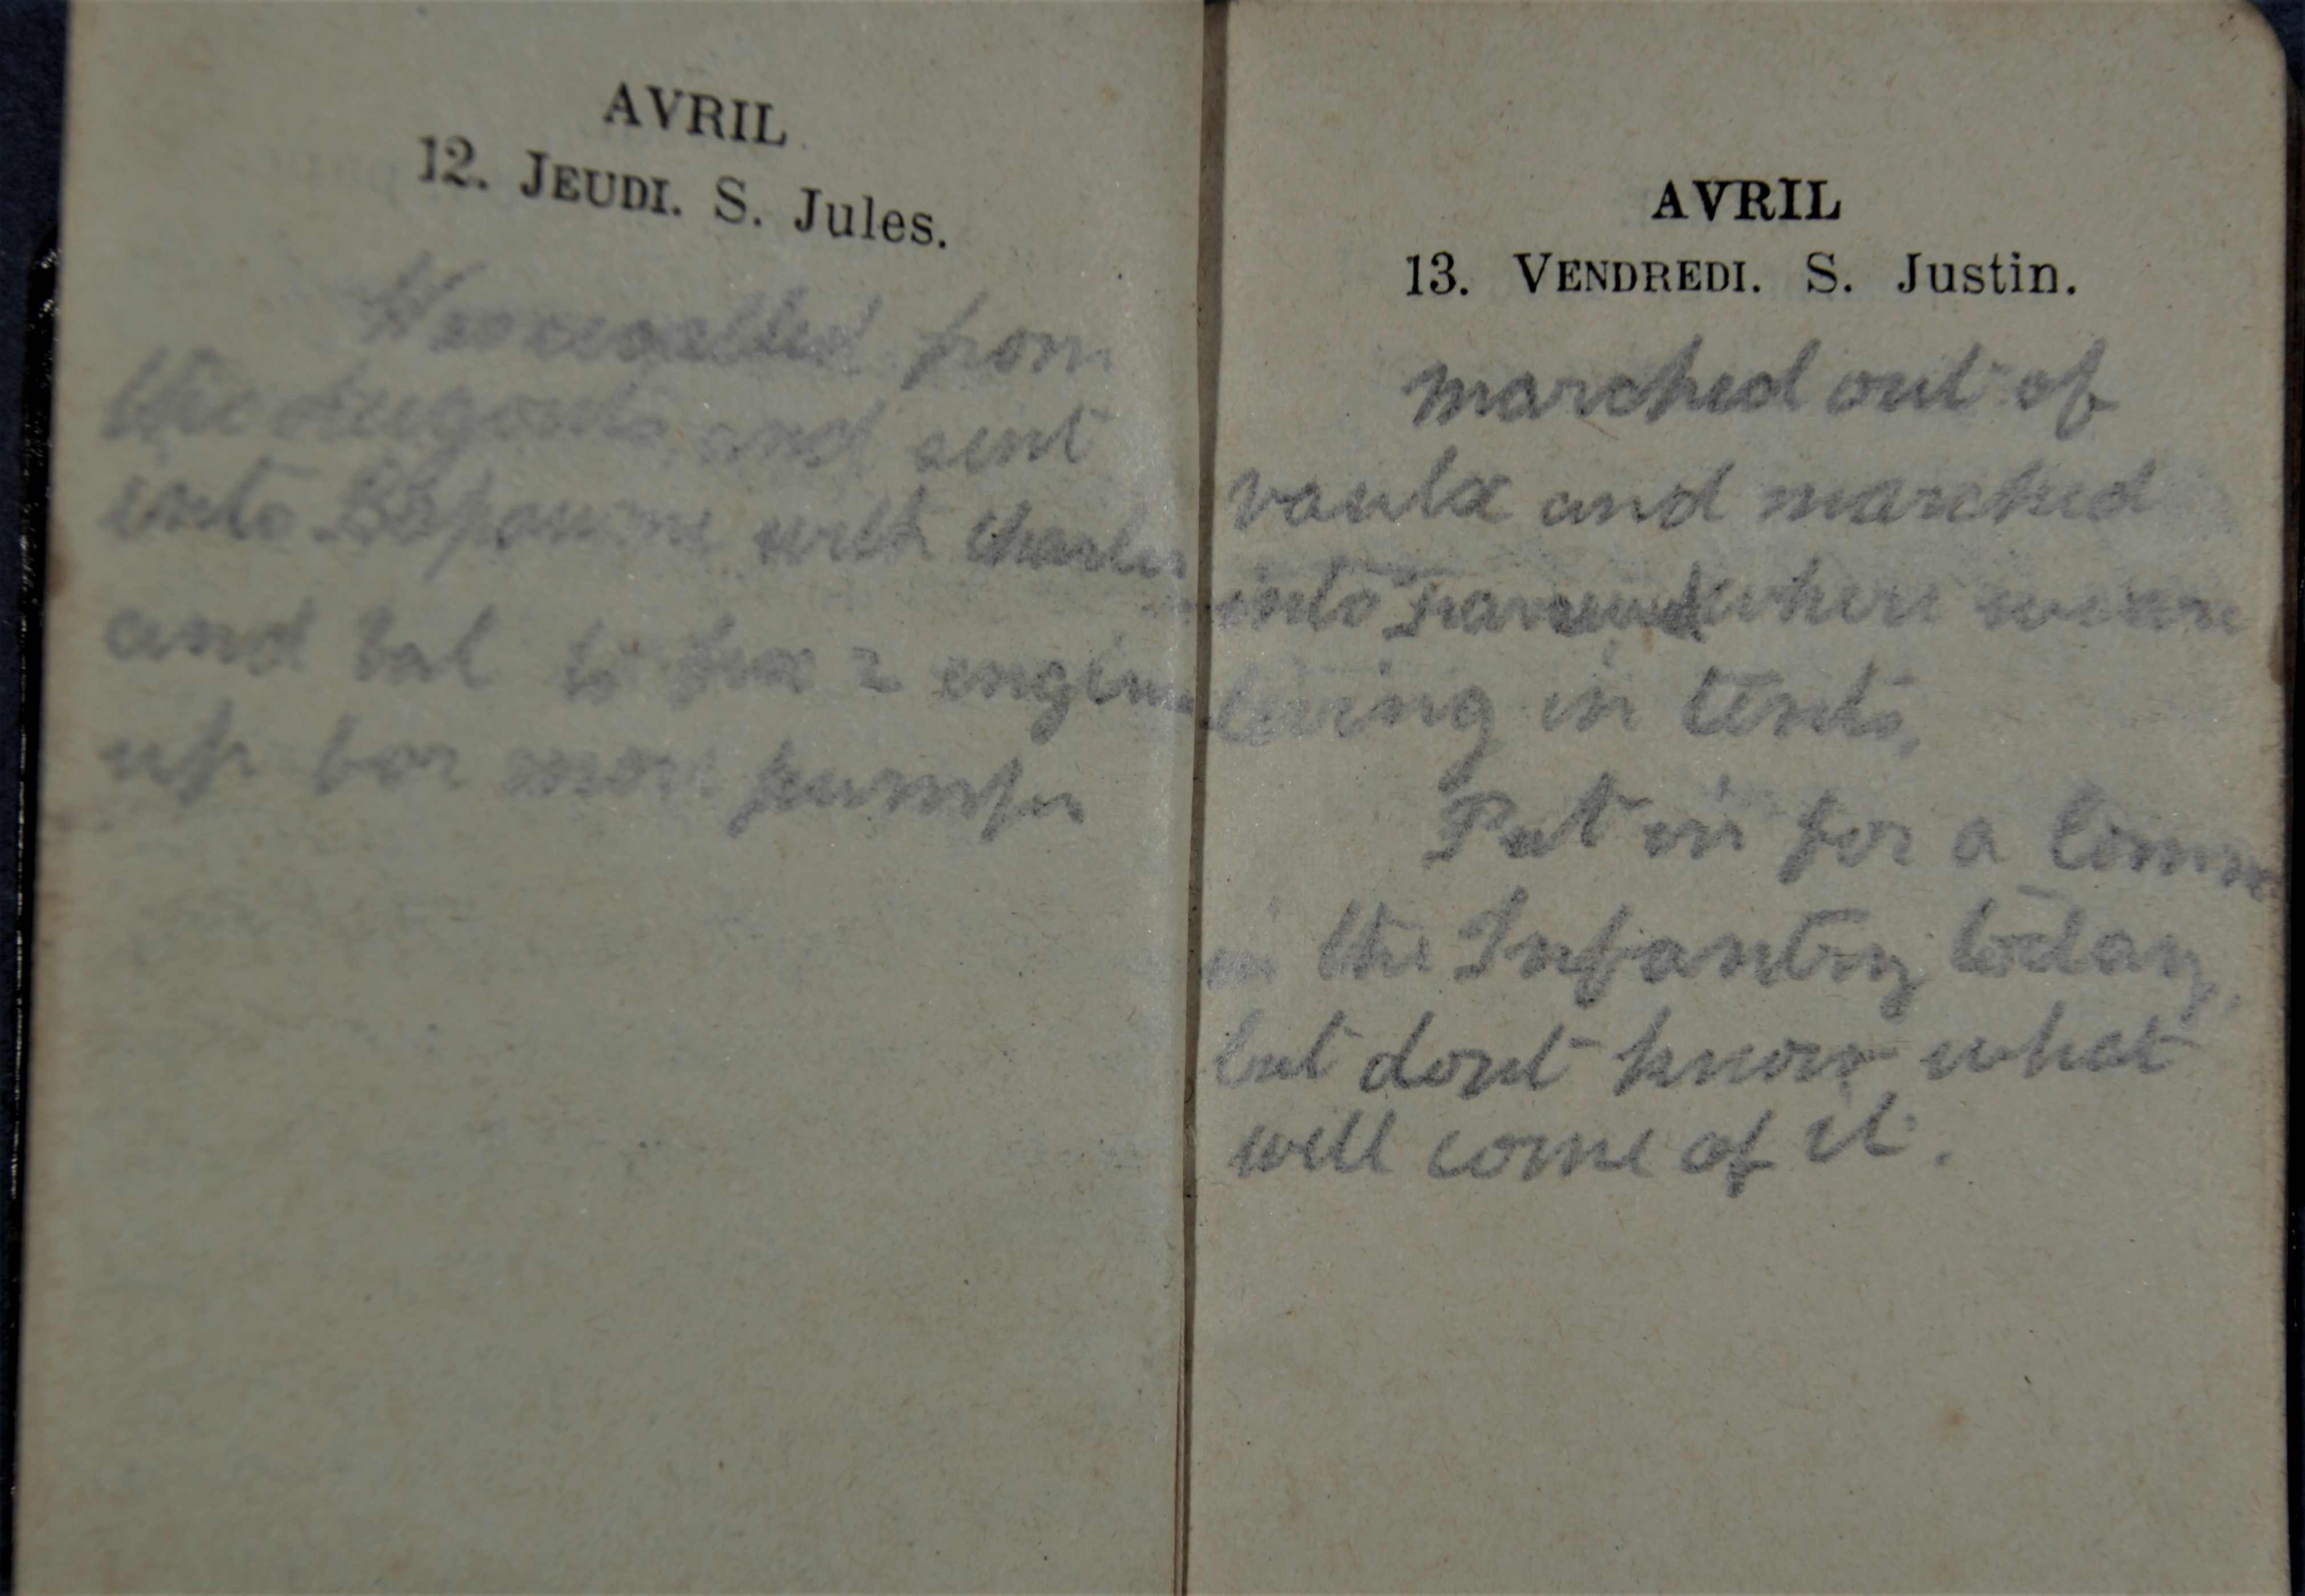 AVRIL
12. JEUDI. S. Jules.
from
the dugouts and sent
into Bapaume with Charles
and Val to fix 2 engines
up for more pumps
AVRIL
13. VENDREDI. S. Justin.
marched out of
vaulx and marched
into where we are
living in tents.
Put in for a Comm
in the Infantry today,
but dont know what
will come of it.